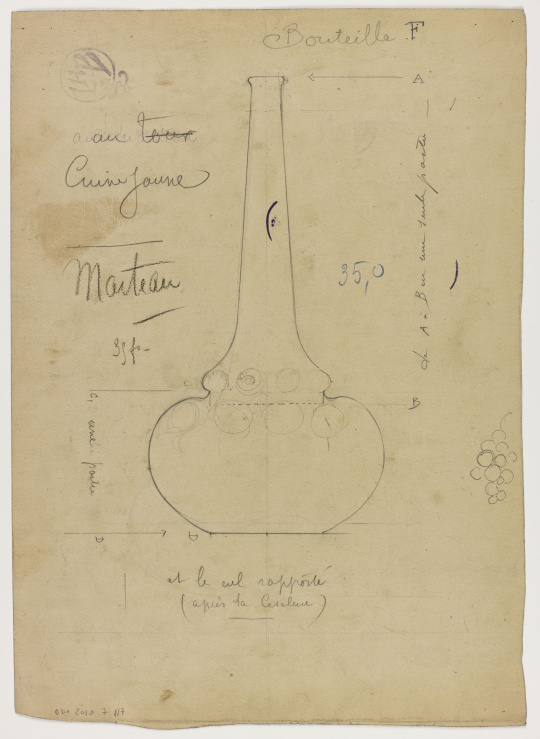 Bouteille F
A
au tour
Cuivre Jaune
Marteau
35,0
35 f -
de A à B en une seule partie
B
C, une partie
D
D
et le cul rapporté
(après la Ciselure)